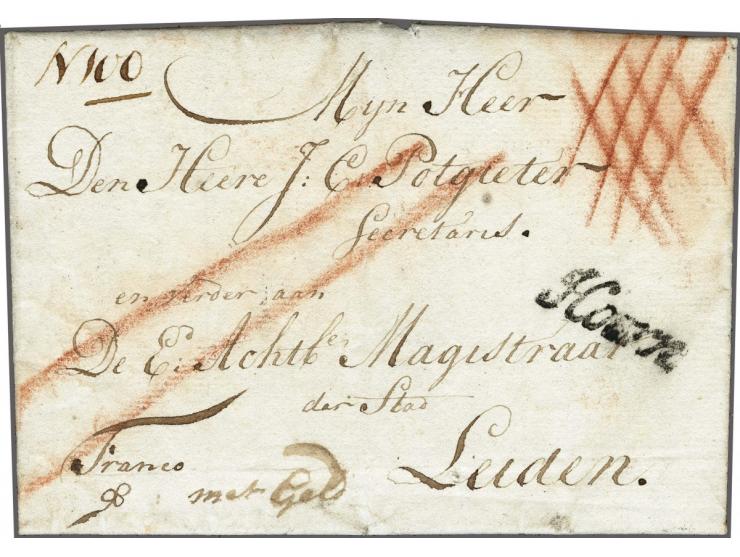 N 100
Myn Heer
Den Heere J: C Potgieter
Secretaris.
en verder aan
Hoorn
De E: Achtb:en Magistraat
der Stad
Franco
Leiden.
met Geld